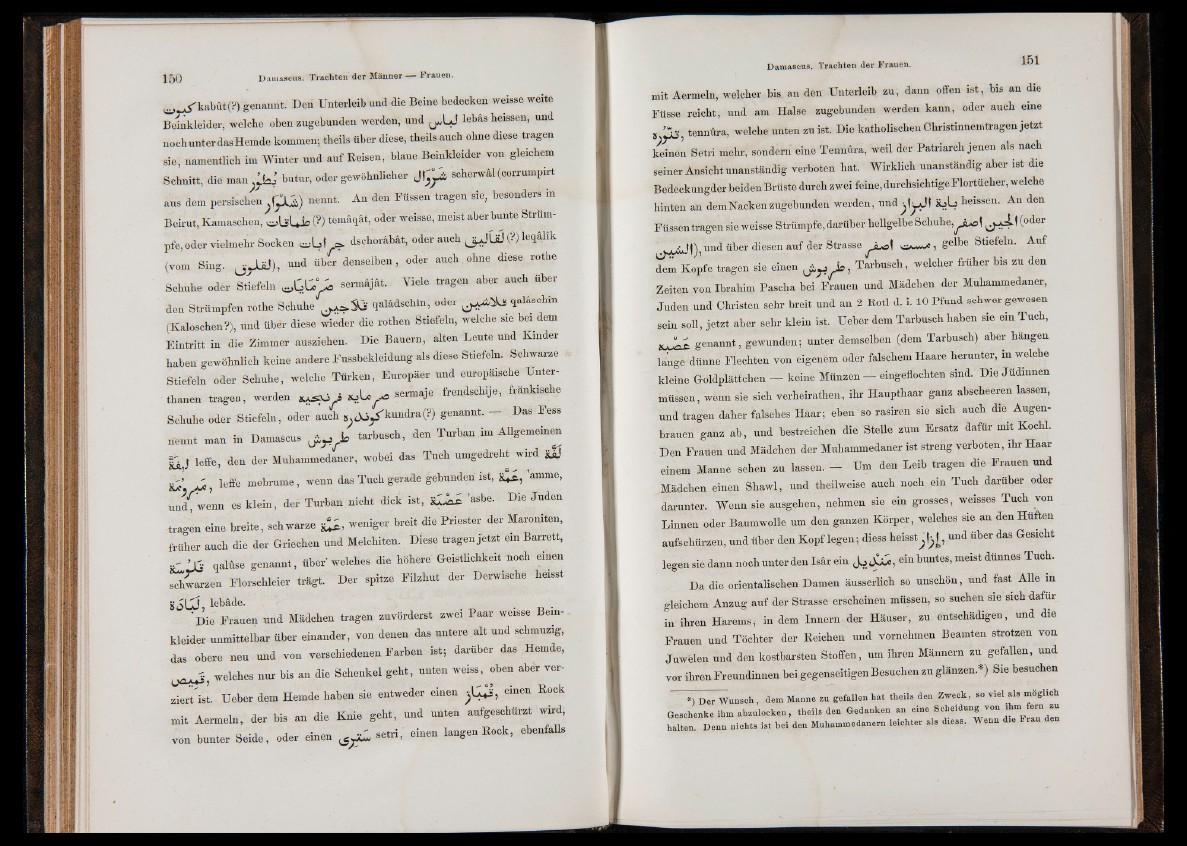 150 Damascus. Trachten der Männer — Frauen.
كبوت kabût(?) genannt. Den Unterleib und die Beine bedecken weisse weite
Beinkleider, welche oben zugebunden werden, und لباس lebâs heissen, und
noch unter das Hemde kommen; theils über diese, theils auch ohne diese tragen
sie, namentlich im Winter und auf Reisen, blaue Beinkleider von gleichem
Schnitt, die man بطور butur, oder gewöhnlicher شروال scherwâl (corrumpirt
aus dem persischen شلوار) nennt. An den Füssen tragen sie, besonders in
Beirut, Kamaschen, طماقات (?) temâqât, oder weisse, meist aber bunte Strüm-
pfe, oder vielmehr Socken جرابات dschorâbât, oder auch لقالیق (?) leqâlîk
(vom Sing. لقلوق), und über denselben, oder auch ohne diese rothe
Schuhe oder Stiefeln صرمایات sermâjât. Viele tragen aber auch über
den Strümpfen rothe Schuhe قلاجین qalâdschîn, oder قلاشین qalâschîn
(Kaloschen?), und über diese wieder die rothen Stiefeln, welche sie bei dem
Eintritt in die Zimmer ausziehen. Die Bauern, alten Leute und Kinder
haben gewöhnlich keine andere Fussbekleidung als diese Stiefeln. Schwarze
Stiefeln oder Schuhe, welche Türken, Europäer und europäische Unter-
thanen tragen, werden صرمایة فرنجیة sermaje frendschije, fränkische
Schuhe oder Stiefeln, oder auch كوندرة kundra(?) genannt. — Das Fess
nennt man in Damascus طربوش tarbusch, den Turban im Allgemeinen
لفة leffe, den der Muhammedaner, wobei das Tuch umgedreht wird لفة
مبرومة, leffe mebrume, wenn das Tuch gerade gebunden ist, عمة, 'amme,
und, wenn es klein, der Turban nicht dick ist, عصبة 'asbe. Die Juden
tragen eine breite, schwarze عمة, weniger breit die Priester der Maroniten,
früher auch die der Griechen und Melchiten. Diese tragen jetzt ein Barrett,
قلوسة qalûse genannt, über welches die höhere Geistlichkeit noch einen
schwarzen Florschleier trägt. Der spitze Filzhut der Derwische heisst
لبادة, lebâde.
Die Frauen und Mädchen tragen zuvörderst zwei Paar weisse Bein-
kleider unmittelbar über einander, von denen das untere alt und schmuzig,
das obere neu und von verschiedenen Farben ist; darüber das Hemde,
قميص, welches nur bis an die Schenkel geht, unten weiss, oben aber ver-
ziert ist. Ueber dem Hemde haben sie entweder einen قمباز, einen Rock
mit Aermeln, der bis an die Knie geht, und unten aufgeschürzt wird,
von bunter Seide, oder einen ستری setri, einen langen Rock, ebenfalls
Damascus. Trachten der Frauen. 151
mit Aermeln, welcher bis an den Unterleib zu, dann offen ist, bis an die
Füsse reicht, und am Halse zugebunden werden kann, oder auch eine
تنورة, tennûra, welche unten zu ist. Die katholischen Christinnen tragen jetzt
keinen Setri mehr, sondern eine Tennûra, weil der Patriarch jenen als nach
seiner Ansicht unanständig verboten hat. Wirklich unanständig aber ist die
Bedeckung der beiden Brüste durch zwei feine, durchsichtige Flortücher, welche
hinten an dem Nacken zugebunden werden, und heissen. An den
Füssen tragen sie weisse Strümpfe, darüber hellgelbe Schuhe, (oder
), und über diesen auf der Strasse , gelbe Stiefeln. Auf
dem Kopfe tragen sie einen طربوش, Tarbusch, welcher früher bis zu den
Zeiten von Ibrahim Pascha bei Frauen und Mädchen der Muhammedaner,
Juden und Christen sehr breit und an 2 Rotl d. i. 10 Pfund schwer gewesen
sein soll, jetzt aber sehr klein ist. Ueber dem Tarbusch haben sie ein Tuch,
عصبة genannt, gewunden; unter demselben (dem Tarbusch) aber hängen
lange dünne Flechten von eigenem oder falschem Haare herunter, in welche
kleine Goldplättchen — keine Münzen — eingeflochten sind. Die Jüdinnen
müssen, wenn sie sich verheirathen, ihr Haupthaar ganz abscheeren lassen,
und tragen daher falsches Haar; eben so rasiren sie sich auch die Augen-
brauen ganz ab, und bestreichen die Stelle zum Ersatz dafür mit Kochl.
Den Frauen und Mädchen der Muhammedaner ist streng verboten, ihr Haar
einem Manne sehen zu lassen. — Um den Leib tragen die Frauen und
Mädchen einen Shawl, und theilweise auch noch ein Tuch darüber oder
darunter. Wenn sie ausgehen, nehmen sie ein grosses, weisses Tuch von
Linnen oder Baumwolle um den ganzen Körper, welches sie an den Hüften
aufschürzen, und über den Kopf legen; diess heisst إزار, und über das Gesicht
legen sie dann noch unter den Isâr ein مندیل, ein buntes, meist dünnes Tuch.
Da die orientalischen Damen äusserlich so unschön, und fast Alle in
gleichem Anzug auf der Strasse erscheinen müssen, so suchen sie sich dafür
in ihren Harems, in dem Innern der Häuser, zu entschädigen, und die
Frauen und Töchter der Reichen und vornehmen Beamten strotzen von
Juwelen und den kostbarsten Stoffen, um ihren Männern zu gefallen, und
vor ihren Freundinnen bei gegenseitigen Besuchen zu glänzen.*) Sie besuchen
*) Der Wunsch, dem Manne zu gefallen hat theils den Zweck, so viel als möglich
Geschenke ihm abzulocken, theils den Gedanken an eine Scheidung von ihm fern zu
halten. Denn nichts ist bei den Muhammedanern leichter als diess. Wenn die Frau den